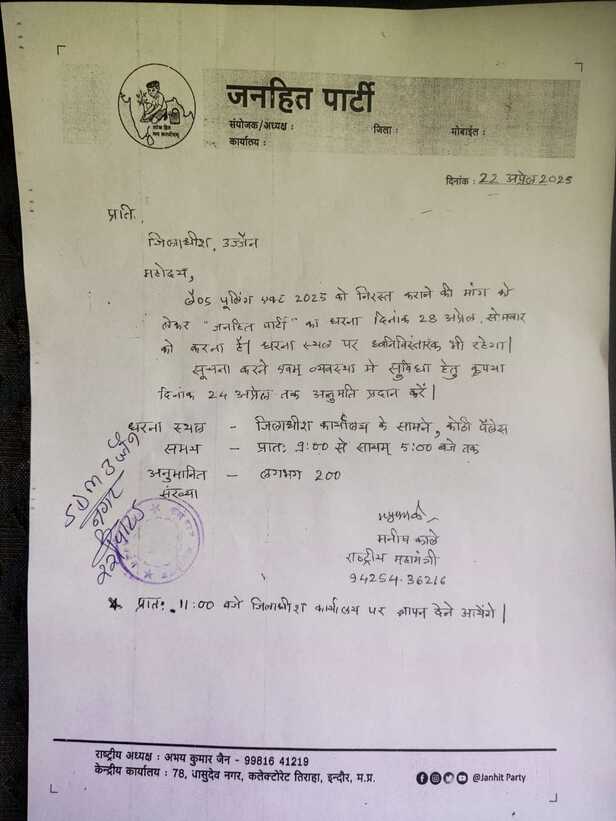 जनहित पार्टी
संयोजक/अध्यक्ष :
जिला :
मोबाईल :
कार्यालय :
दिनांक : 22 अप्रेल 2025
प्रति,
जिलाधीश, उज्जैन
महोदय,
लैण्ड पूलिंग एक्ट 2025 को निरस्त कराने की मांग को
लेकर "जनहित पार्टी" का धरना दिनांक 28 अप्रेल, सोमवार
को करना है| धरना स्थल पर ध्वनिविस्तारक भी रहेगा|
सूचना करने एवम् व्यवस्था मे सुविधा हेतु कृपया
दिनांक 24 अप्रेल तक अनुमति प्रदान करें |
धरना स्थल - जिलाधीश कार्यालय के सामने, कोठी पैलेस
समय - प्रातः 9:00 से सायम् 5:00 बजे तक
अनुमानित - लगभग 200
संख्या
SDM उज्जैन
नगर
मनीष काले
राष्ट्रीय महामंत्री
94254-36216
* प्रातः 11:00 बजे जिलाधीश कार्यालय पर ज्ञापन देने आयेंगे |
राष्ट्रीय अध्यक्ष : अभय कुमार जैन - 99816 41219
केन्द्रीय कार्यालय : 78, वासुदेव नगर, कलेक्टोरेट तिराहा, इन्दौर, म.प्र.
@Janhit Party